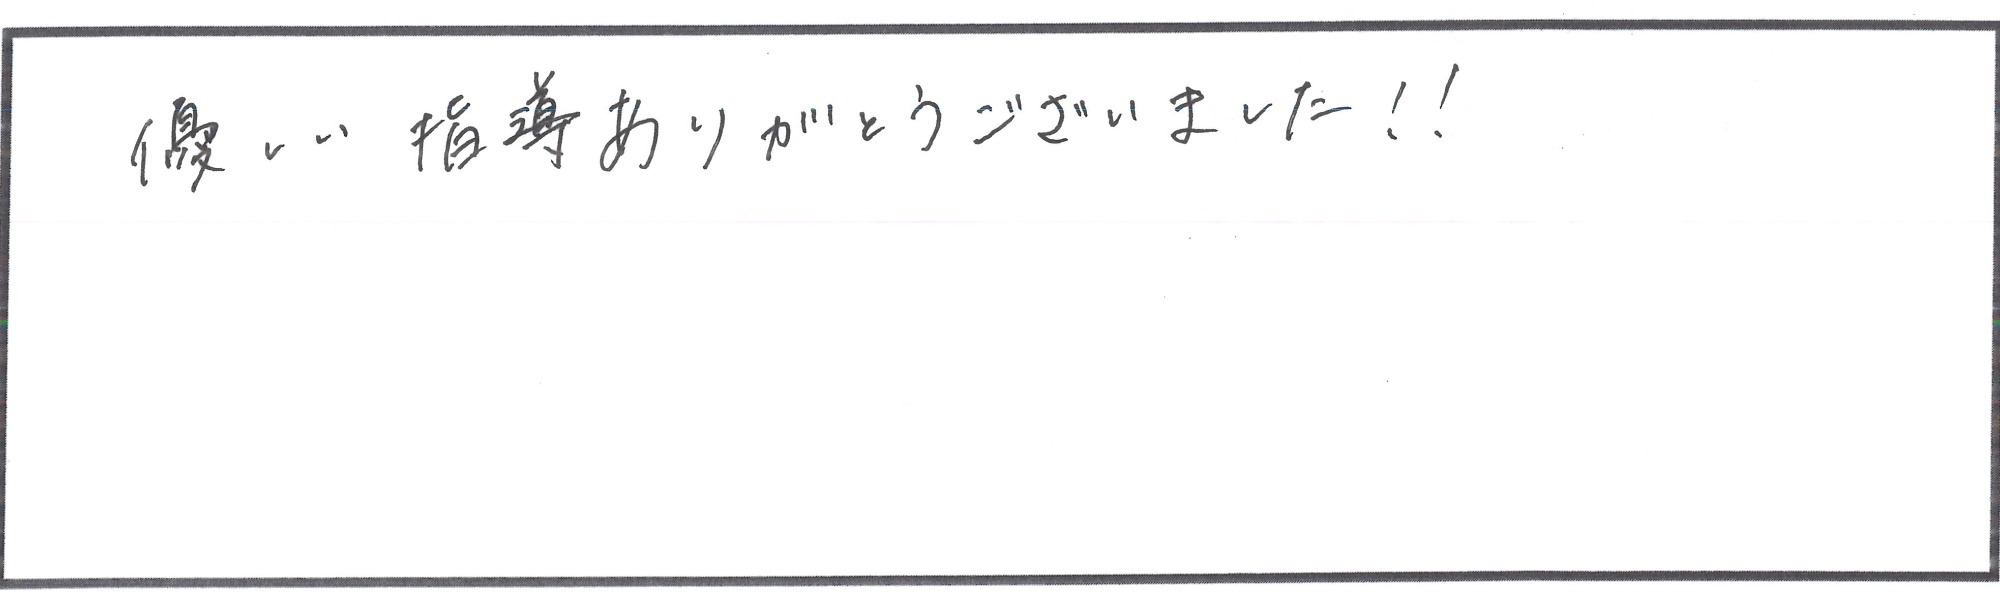 優しい指導ありがとうございました!!